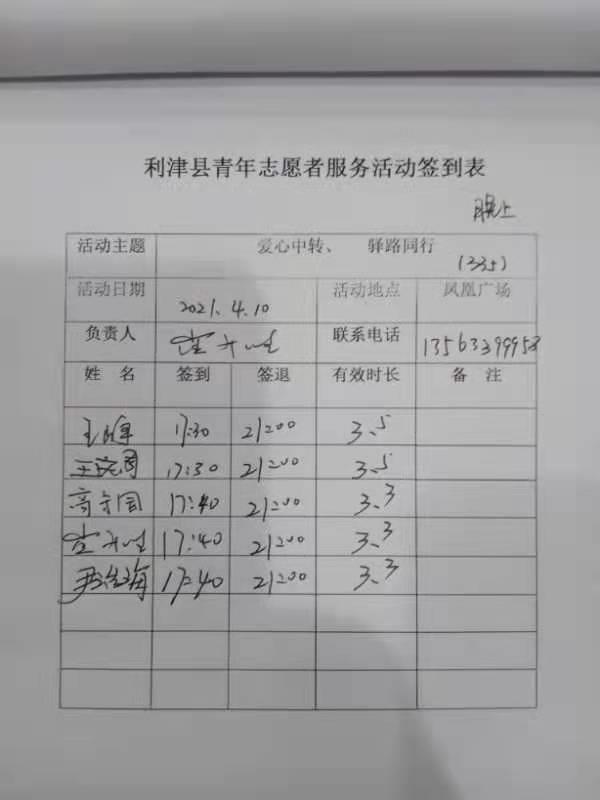 利津县青年志愿者服务活动签到表
晚上
活动主题 爱心中转、 驿路同行 (335)
活动日期 2021.4.10 活动地点 凤凰广场
负责人 联系电话 13563399958
姓名 签到 签退 有效时长 备注
17:30 21:00 3.5
17:30 21:00 3.5
高守国 17:40 21:00 3.3
17:40 21:00 3.3
17:40 21:00 3.3